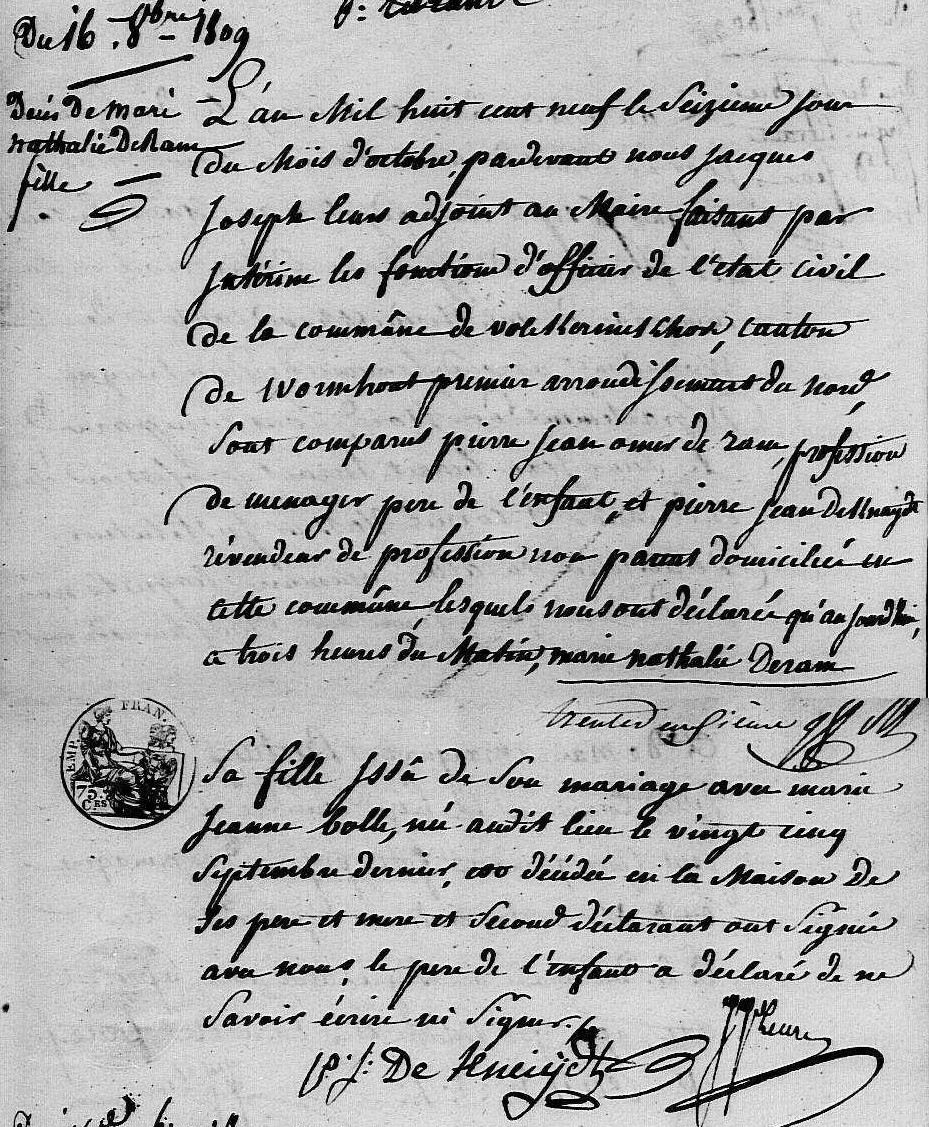 Du 16. 8bre – 1809
Decès De mari
nathalie DeRam
fille
L'an Mil huit cent neuf le Seizieme jour
du Mois d'octobre, pardevant nous jacques
Joseph leurs adjoint au Maire faisant par
Intérim les fonctions d'officier de l'etat civil
de la commûne de volckerinckhove, canton
de Wormhout premier arrondissement du nord
Sont comparus pierre jean omer de ram, profession
de menager pere de l'enfant, et pierre jean DeKneydt
révendeur de profession non parent domiciliée en
cette commûne, lesquels nous ont déclarée qu'aujourd'hui,
a trois heures du Matin, marie nathalie Deram
EMP. FRAN.
75.
CES
Sa fille Issû de Son mariage avec marie
Jeanne bolle, née audit lieu le vingt cinq
Septembre dernier, est décédée en la Maison De
Ses pere et mere et Second déclarant ont Signée
avec nous, le pere de l'enfant a déclaré de ne
Savoir écrire ni Signer.
p: j: De Kneiydt